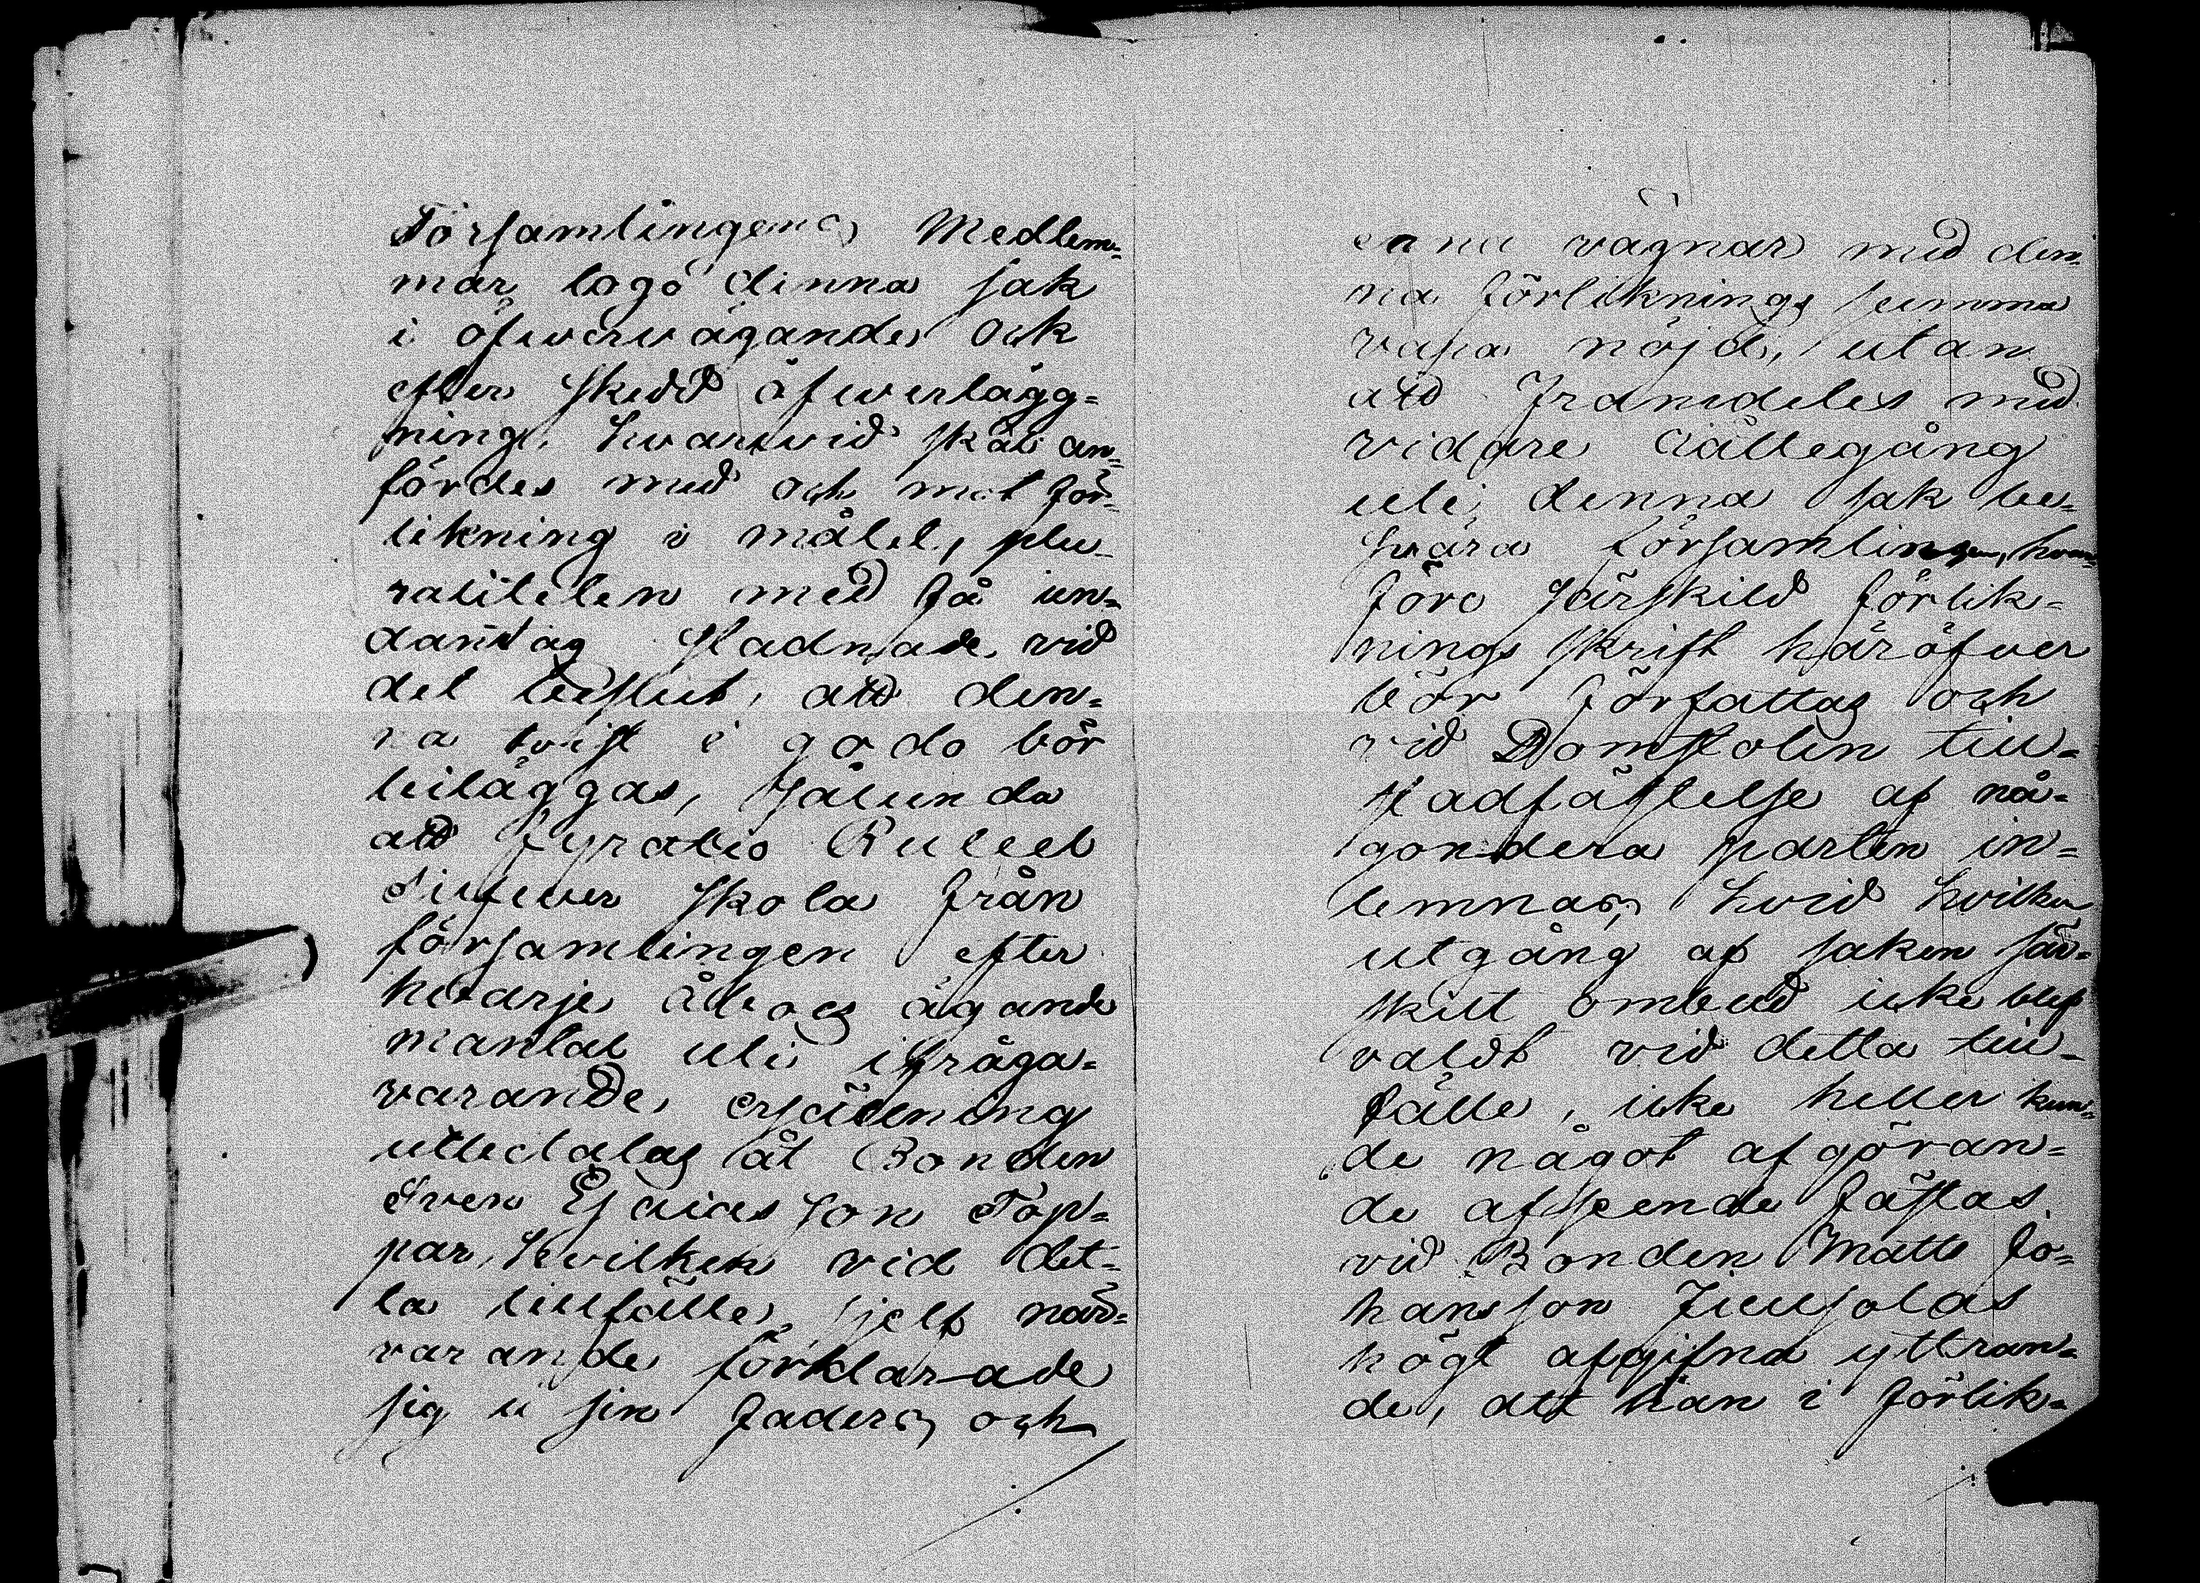 Församlingens Medlem-
mar togo denna sak
i öfwerwägande och
efter skedd öfwerlägg-
ning, hvarvid skäl an-
fördes med och mot för-
likning i målet, plu-
raliteten med få un-
dantag stadnade vid
det beslut, att den-
na tvist i godo bör
biläggas, sålunda
att fyratio Rubel
Silfwer skola från
församlingen efter
hvarje åboes ägande
mantal uti ifråga-
varande ersättning
utbetalas åt Bonden
Sven Esaias son Töp-
par, hvilken vid det-
ta tillfälle sjelf när-
varande förklarade
sig i sin faders och
egna vägnar med den-
na förliknings summa
vara nöjd, utan
att framdeles med
vidare rättegång
uti denna sak be-
svära församlingen, hvar-
före särskild förlik-
nings skrift häröfver
bör författas och
vid Domstolen till
stadfästelse af nå-
gondera parten in-
lemnas, hvid hvilken
utgång af saken sär-
skilt ombud icke blef
valdt vid detta till-
fälle, icke heller kun-
de något afgöran-
de afseende fästas
vid Bonden Matts Jo-
hansson
högt afgifna yttran-
de, att han i förlik-